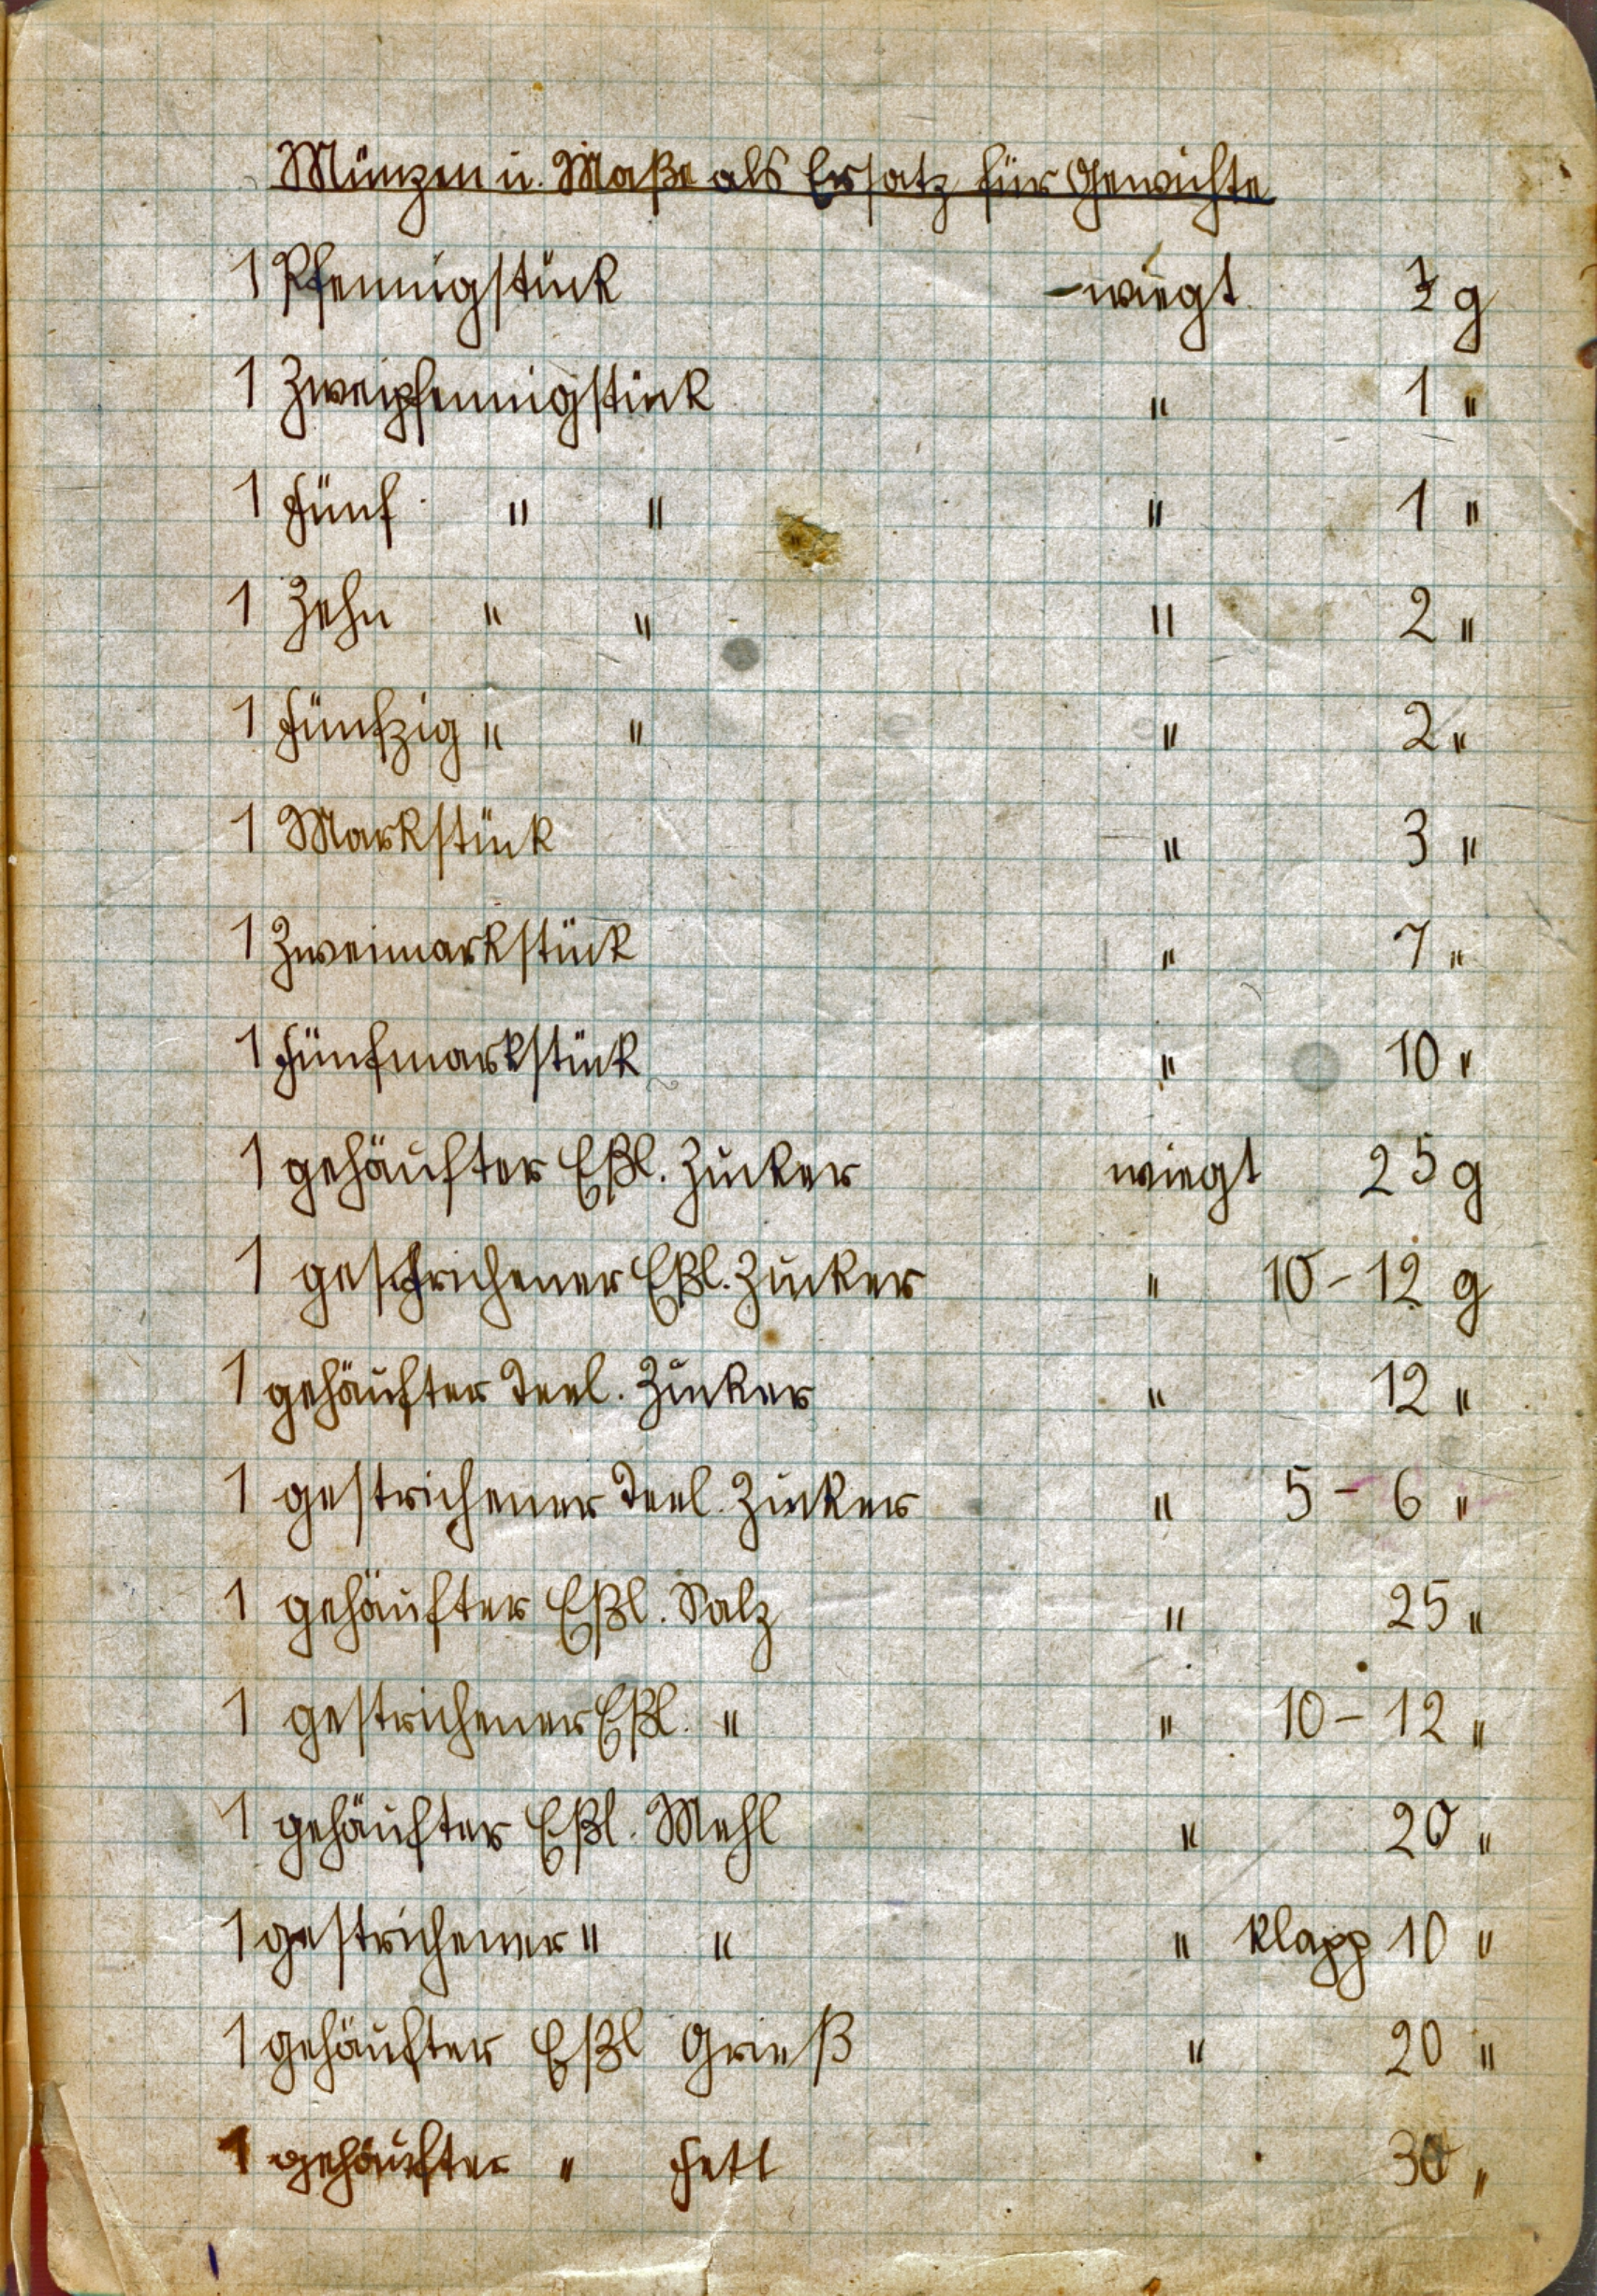 Münzen u. Maße als Ersatz für Gewichte
1 Pfennigstück wiegt g
1 Zweipfennigstück " 1 "
1 Fünf " " " 1 "
1 Zehn " " " 2 "
1 Fünfzig " " " 2 "
1 Markstück " 3 "
1 Zweimarkstück " 7 "
1 Fünfmarkstück " 10 "
1 gehäufter Eßl. Zucker wiegt 25 g
1 gestrichener Eßl. Zucker " 10-12 g
1 gehäufter Teel. Zucker " 12 "
1 gestrichener Teel. Zucker " 5-6 "
1 gehäufter Eßl. Salz " 25 "
1 gestrichener Eßl. " " 10-12 "
1 gehäufter Eßl. Mehl " 20 "
1 gestrichener " " " klapp 10 "
1 gehäufter Eßl Grieß " 20 "
1 gehäufter " Fett 30 "